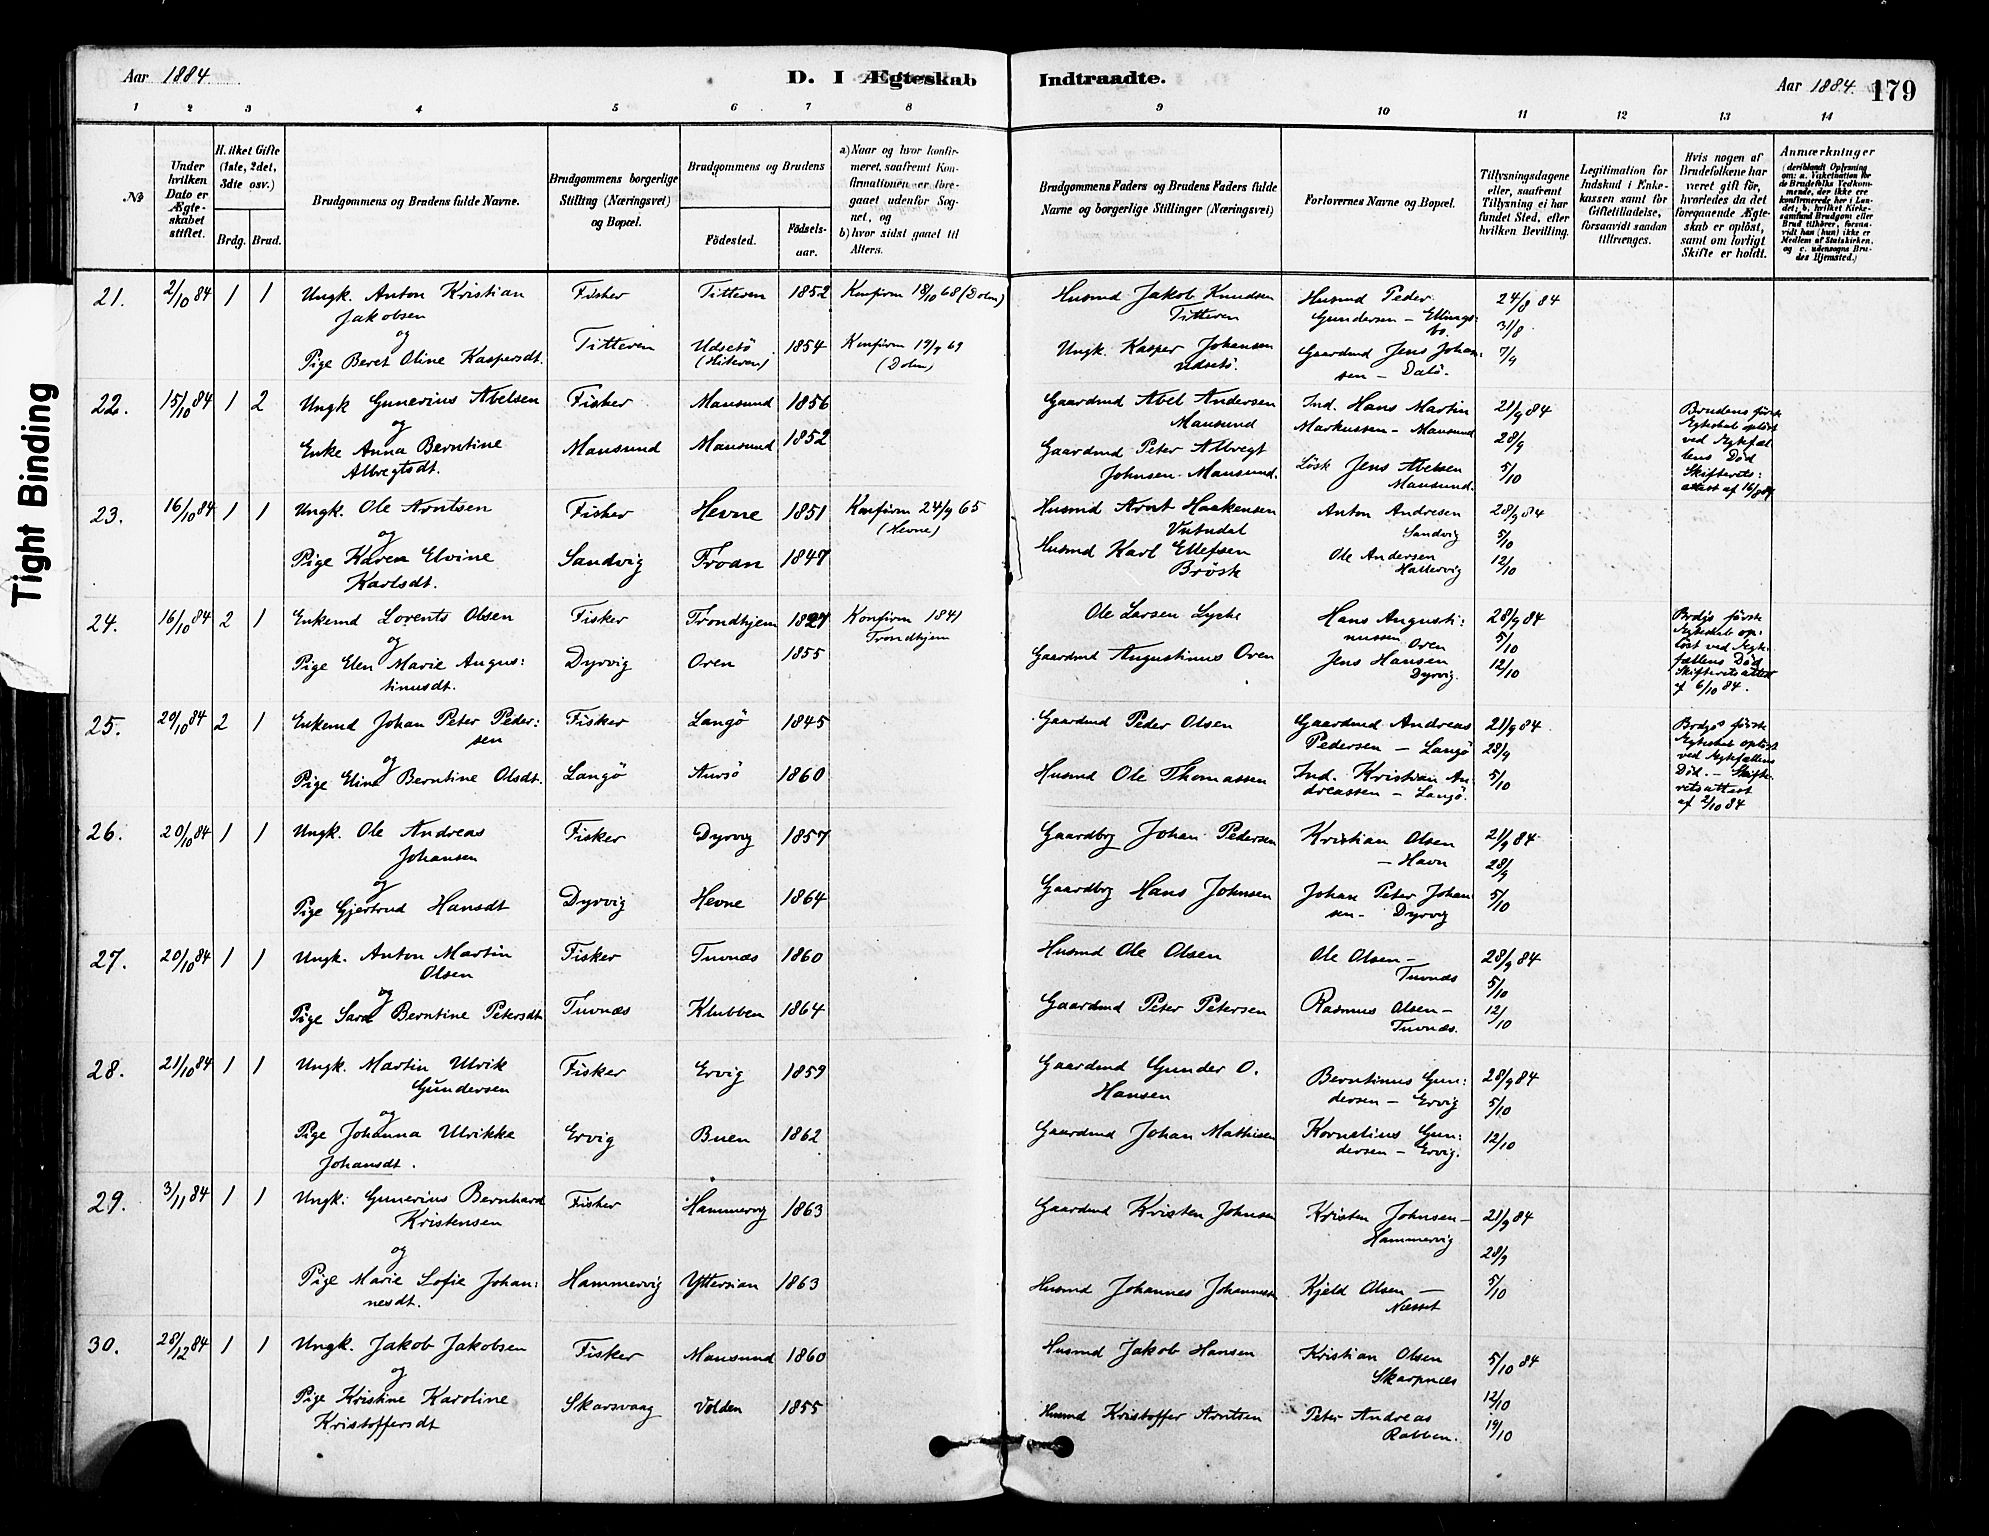 Tight Binding
Aar 1884.
D. I Ægteskab Indtraadte.
Aar 1884. 179
1 2 3 4 5 6 7 8 9 10 11 12 13 14
№
Under hvilken Dato er Ægteskabet stiftet.
Hvilket Gifte (1ste, 2det, 3die osv.)
Brdg. Brud.
Brudgommens og Brudens fulde Navne.
Brudgommens borgerlige Stilling (Næringsvei) og Bopæl.
Brudgommens og Brudens
Fødested.
Fødselsaar.
a) Naar og hvor konfirmeret, saafremt Konfirmationen er foregaaet udenfor Sognet, og
b) hvor sidst gaaet til Alters.
Brudgommens Faders og Brudens Faders fulde Navne og borgerlige Stillinger (Næringsvei)
Forlovernes Navne og Bopæl.
Tillysningsdagene eller, saafremt Tillysning ei har fundet Sted, efter hvilken Bevilling.
Legitimation for Indskud i Enkekassen samt for Giftetilladelse, forsaavidt saadan tiltrænges.
Hvis nogen af Brudefolkene har været gift før, hvorledes da det foregaaende Ægteskab er opløst, samt om lovligt Skifte er holdt.
Anmærkninger
21. 2/10 84 1 1 Ungk. Anton Kristian Jakobsen Fisker Titteren 1852 Konfirm 18/10 68 (Dolm) Husmd Jakob Knudsen Titteren Husmd Peder Gundersen – Ellingsbo. 24/8 84
31/8
og
Pige Beret Oline Kaspersdt. Titteren Udsetö (Hitteren) 1854 Konfirm 19/9 69 (Dolm) Ungk. Kasper Johansen Udsetö. Gaardmd Jens Johansen – Dalö. 7/9
22. 15/10 84 1 2 Ungk Gunerius Abelsen Fisker Mausund 1856 Gaardmd Abel Andersen Mausund Ind. Hans Martin Markussen – Mausund 21/9 84 Brudens første Ægteskab opløst ved Ægtefællens Död Skifteretsattest af 16/8 84
28/9
og
Enke Anna Berntine Albregtsdt. Mausund Mausund 1852 Gaardmd Peter Albregt Johnsen – Mausund. Lösk Jens Abelsen Mausund. 5/10
23. 16/10 84 1 1 Ungk. Ole Arntsen Fisker Hevne 1851 Konfirm 24/9 65 (Hevne) Husmd Arnt Haakensen Vutudal Anton Andresen Sandvig 28/9 84
5/10
og
Pige Karen Elvine Karlsdt. Sandvig Froan 1847 Husmd Karl Ellefsen Brösk Ole Andersen Hallervig 12/10
24. 16/10 84 2 1 Enkemd Lorents Olsen Fisker Trondhjem 1827 Konfirm 1841 Trondhjem Ole Larsen Lyche Hans Augustinussen Oren 28/9 84 Brdgs første Ægteskab opløst ved Ægtefællens Död Skifteretsattest af 6/10 84.
5/10
og
Pige Elen Marie Augustinusdt. Dyrvig Oren 1855 Gaardmd Augustinus Oren Jens Hansen Dyrvig. 12/10
25. 20/10 84 2 1 Enkemd Johan Peter Pedersen Fisker Langö 1845 Gaardmd Peder Olsen Gaardmd Andreas Pedersen – Langö 21/9 84 Brdgs første Ægteskab opløst ved Ægtefællens Död. – Skifteretsattest af 2/10 84
28/9
og
Pige Elina Berntine Olsdt. Langö Aursö 1860 Husmd Ole Thomassen Ind. Kristian Andreassen – Langö. 5/10
26. 20/10 84 1 1 Ungk. Ole Andreas Johansen Fisker Dyrvig 1857 Gaardbrg Johan Pedersen Kristian Olsen – Havn 21/9 84
28/9
og
Pige Gjertrud Hansdt Dyrvig Hevne 1864 Gaardbrg Hans Johnsen Johan Peter Johansen – Dyrvig 5/10
27. 20/10 84 1 1 Ungk. Anton Martin Olsen Fisker Tuvnæs 1860 Husmd Ole Olsen Ole Olsen – Tuvnæs 28/9 84
5/10
og
Pige Sara Berntine Petersdt Tuvnæs Klubben 1864 Gaardmd Peter Petersen Rasmus Olsen – Tuvnæs. 12/10
28. 21/10 84 1 1 Ungk. Martin Ulrik Gundersen Fisker Ervig 1859 Gaardmd Gunder O. Hansen Berntinus Gundersen – Ervig 28/9 84
5/10
og
Pige Johanna Ulrikke Johansdt. Ervig Buen 1862 Gaardmd Johan Mathisen Kornelius Gundersen – Ervig. 12/10
29. 3/11 84 1 1 Ungk: Gunerius Bernhard Kristensen Fisker Hammervig 1863 Gaardmd Kristen Johnsen Kristen Johnsen – Hammervig 21/9 84
28/9
og
Pige Marie Sofie Johannesdt. Hammervig Yttersian 1863 Husmd Johannes Johannesen Kjeld Olsen – Næsset 5/10
30. 28/12 84 1 1 Ungk. Jakob Jakobsen Fisker Mausund 1860 Husmd Jakob Hansen Kristian Olsen Skarpnæs 5/10 84
12/10
og
Pige Kristine Karoline Kristoffersdt Skarsvaag Volden 1855 Husmd Kristoffer Arntsen Peter Andreas Rabben. 19/10